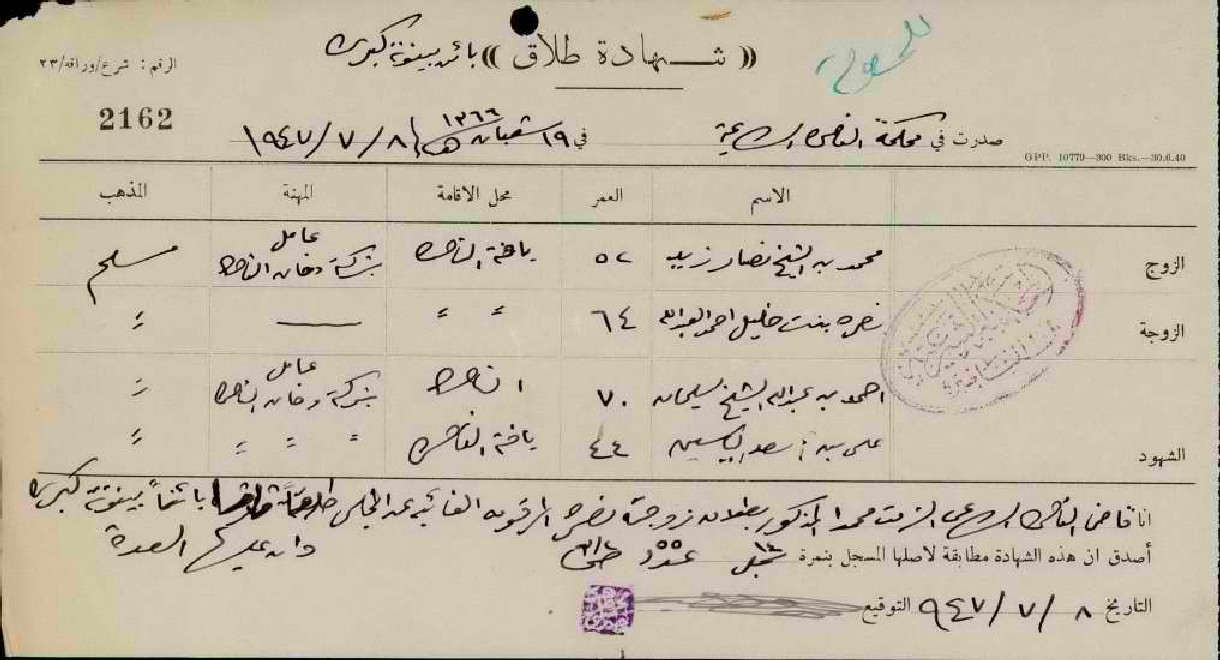 (( شهادة طلاق )) بائن بينونة كبرى
الرقم : شرع/وراقه/٢٣
2162
صدرت في محكمة الناصرة الشرعية في ١٩ شعبان ١٣٦٦ هـ ٨/٧/٩٤٧
GPP. 10779—300 Bks.—30.6.40
الاسم العمر محل الاقامة المهنة المذهب
الزوج محمد بن الشيخ نصار زيد ٥٢ يافة الناصرة عامل بشركة دخان الناصرة مسلم
الزوجة نصره بنت خليل احمد العبدالله ٦٤ " " — "
احمد بن عبدالله الشيخ سليمان ٧٠ الناصرة عامل بشركة دخان الناصرة "
الشهود علي بن سعد الياسين ٤٤ يافة الناصرة " " " "
انا قاضي الناصرة الشرعي الزمت محمد المذكور بطلاق زوجته نصره المرقومة الغائبة عن المجلس طلاقا بائناً بينونة كبرى
وان عليها العدة
أصدق ان هذه الشهادة مطابقة لاصلها المسجل بنمرة سجل عدد
التاريخ ٨/٧/٩٤٧ التوقيع